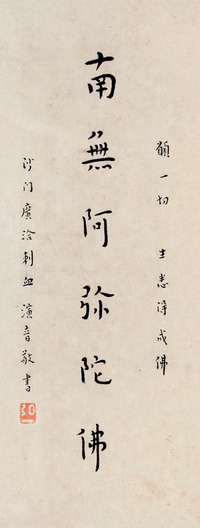 願一切 生悉得成佛
南無阿弥陀佛
沙门廣洽刺血演音敬書
弘一